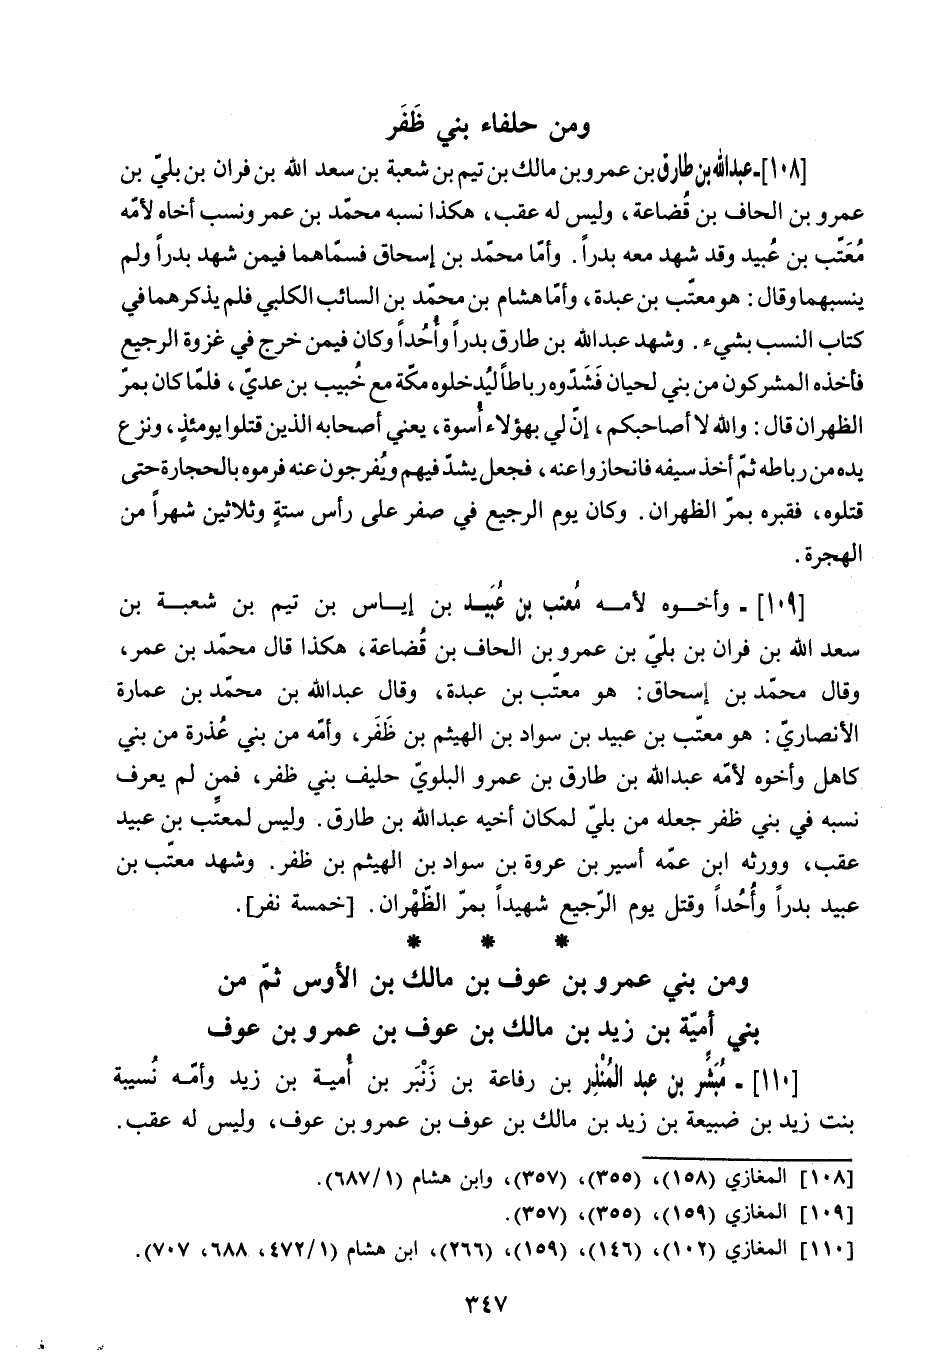 ومن حلفاء بني ظَفَر
[١٠٨]ـ عبدالله بن طارق بن عمرو بن مالك بن تيم بن شعبة بن سعد الله بن فران بن بليّ بن
عمرو بن الحاف بن قُضاعة، وليس له عقب، هكذا نسبه محمّد بن عمر ونسب أخاه لأمّه
مُعَتِّب بن عُبيد وقد شهد معه بدراً. وأمّا محمّد بن إسحاق فسمّاهما فيمن شهد بدراً ولم
ينسبهما وقال: هو معتّب بن عبدة، وأمّا هشام بن محمّد بن السائب الكلبي فلم يذكرهما في
كتاب النسب بشيء. وشهد عبدالله بن طارق بدراً وأُحُداً وكان فيمن خرج في غزوة الرجيع
فأخذه المشركون من بني لحيان فَشَدّوه رباطاً ليُدخلوه مكّة مع خُبيب بن عديّ، فلمّا كان بمرّ
الظهران قال: والله لا أصاحبكم، إنّ لي بهؤلاء أُسوة، يعني أصحابه الذين قتلوا يومئذٍ، ونزع
يده من رباطه ثمّ أخذ سيفه فانحازوا عنه، فجعل يشدّ فيهم ويُفرجون عنه فرموه بالحجارة حتى
قتلوه، فقبره بمرّ الظهران. وكان يوم الرجيع في صفر على رأس ستةٍ وثلاثين شهراً من
الهجرة.
[١٠٩] ـ وأخـوه لأمـه مُعتب بن عُبَيـد بن إيـاس بن تيم بن شعبـة بن
سعد الله بن فران بن بليّ بن عمرو بن الحاف بن قُضاعة، هكذا قال محمّد بن عمر،
وقال محمّد بن إسحاق: هو معتّب بن عبدة، وقال عبدالله بن محمّد بن عمارة
الأنصاريّ: هو معتّب بن عبيد بن سواد بن الهيثم بن ظَفَر، وأمّه من بني عُذرة من بني
كاهل وأخوه لأمّه عبدالله بن طارق بن عمرو البلويّ حليف بني ظفر، فمن لم يعرف
نسبه في بني ظفر جعله من بليّ لمكان أخيه عبدالله بن طارق. وليس لمعتِّب بن عبيد
عقب، وورثه ابن عمّه أسير بن عروة بن سواد بن الهيثم بن ظفر. وشهد معتّب بن
عبيد بدراً وأُحُداً وقتل يوم الرّجيع شهيداً بمرّ الظّهْران. [خمسة نفر].
* * *
ومن بني عمرو بن عوف بن مالك بن الأوس ثمّ من
بني أميّة بن زيد بن مالك بن عوف بن عمرو بن عوف
[١١٠] ـ مُبَشِّر بن عبد المُنْذِر بن رفاعة بن زَنْبَر بن أُمية بن زيد وأمّه نُسيبة
بنت زيد بن ضبيعة بن زيد بن مالك بن عوف بن عمرو بن عوف، وليس له عقب.
[١٠٨] المغازي (١٥٨)، (٣٥٥)، (٣٥٧)، وابن هشام (١/٦٨٧).
[١٠٩] المغازي (١٥٩)، (٣٥٥)، (٣٥٧).
[١١٠] المغازي (١٠٢)، (١٤٦)، (١٥٩)، (٢٦٦)، ابن هشام (١/٤٧٢، ٦٨٨، ٧٠٧).
٣٤٧